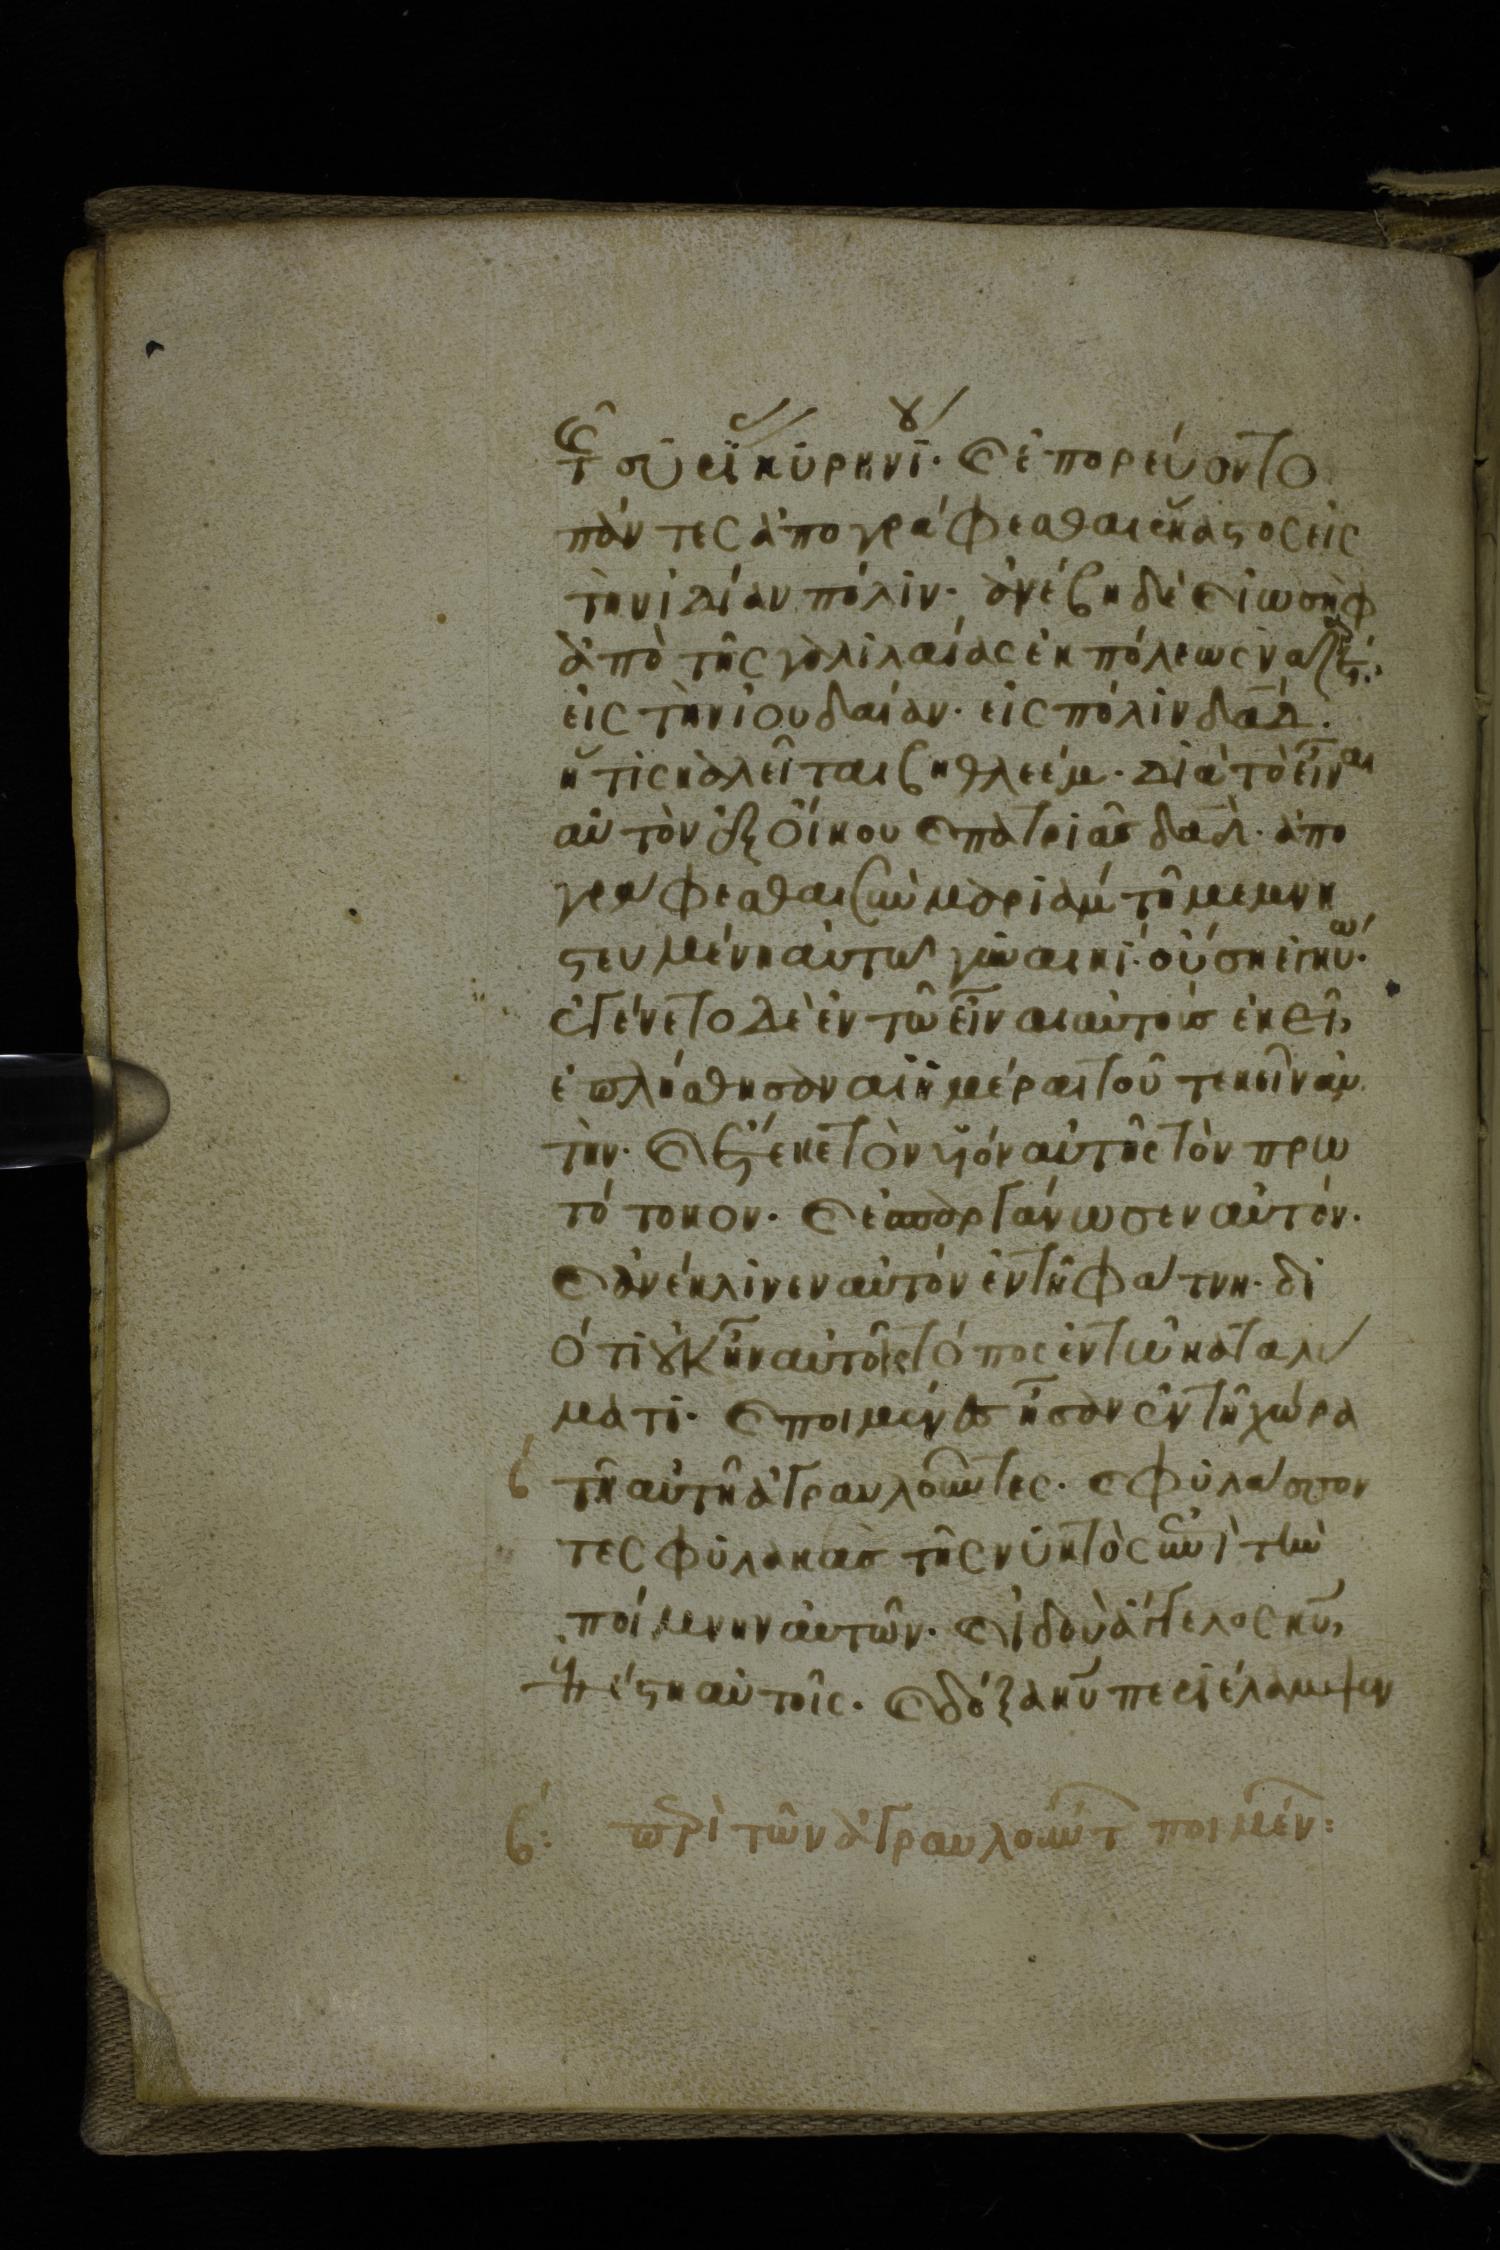 τῆς συρίας κυρηνίου· καὶ ἐπορεύοντο
πάντες ἀπογράφεσθαι ἕκαστος εἰς
τὴν ἰδίαν πόλιν· ἀνέβη δὲ καὶ ἰωσὴφ
ἀπὸ τῆς γαλιλαίας ἐκ πόλεως ναζαρέτ·
εἰς τὴν ἰουδαίαν· εἰς πόλιν δαδ·
ἥτις καλεῖται βηθλεέμ· διὰ τὸ εἶναι
αὐτὸν ἐξ οἴκου καὶ πατριᾶς δαδ· ἀπο
γράφεσθαι σὺν μαριὰμ τῇ μεμνη
στευμένη αὐτῶ γυναικί· οὔση ἐγκύω·
ἐγένετο δὲ ἐν τῶ εἶναι αὐτοὺς ἐκεῖ,
ἐπλήσθησαν αἱ ἡμέραι τοῦ τεκεῖν αὐ
τήν· καὶ ἔτεκε τὸν υἱὸν αὐτῆς τὸν πρω
τότοκον· καὶ ἐσπαργάνωσεν αὐτόν·
καὶ ἀνέκλινεν αὐτὸν ἐν τῇ φάτνη· δι
ότι οὐκ ἦν αὐτοῖς τόπος ἐν τῶ καταλύ
ματι· καὶ ποιμένες ἦσαν ἐν τῇ χώρα
β τῇ αὐτῇ ἀγραυλοῦντες· καὶ φυλάσσον
τες φυλακὰς τῆς νυκτὸς ἐπὶ τὴν
ποίμνην αὐτῶν· καὶ ἰδοὺ ἄγγελος κυ,
ἐπέστη αὐτοῖς· καὶ δόξα κυ περιέλαμψεν
β: περὶ τῶν ἀγραυλούντ ποιμέν: